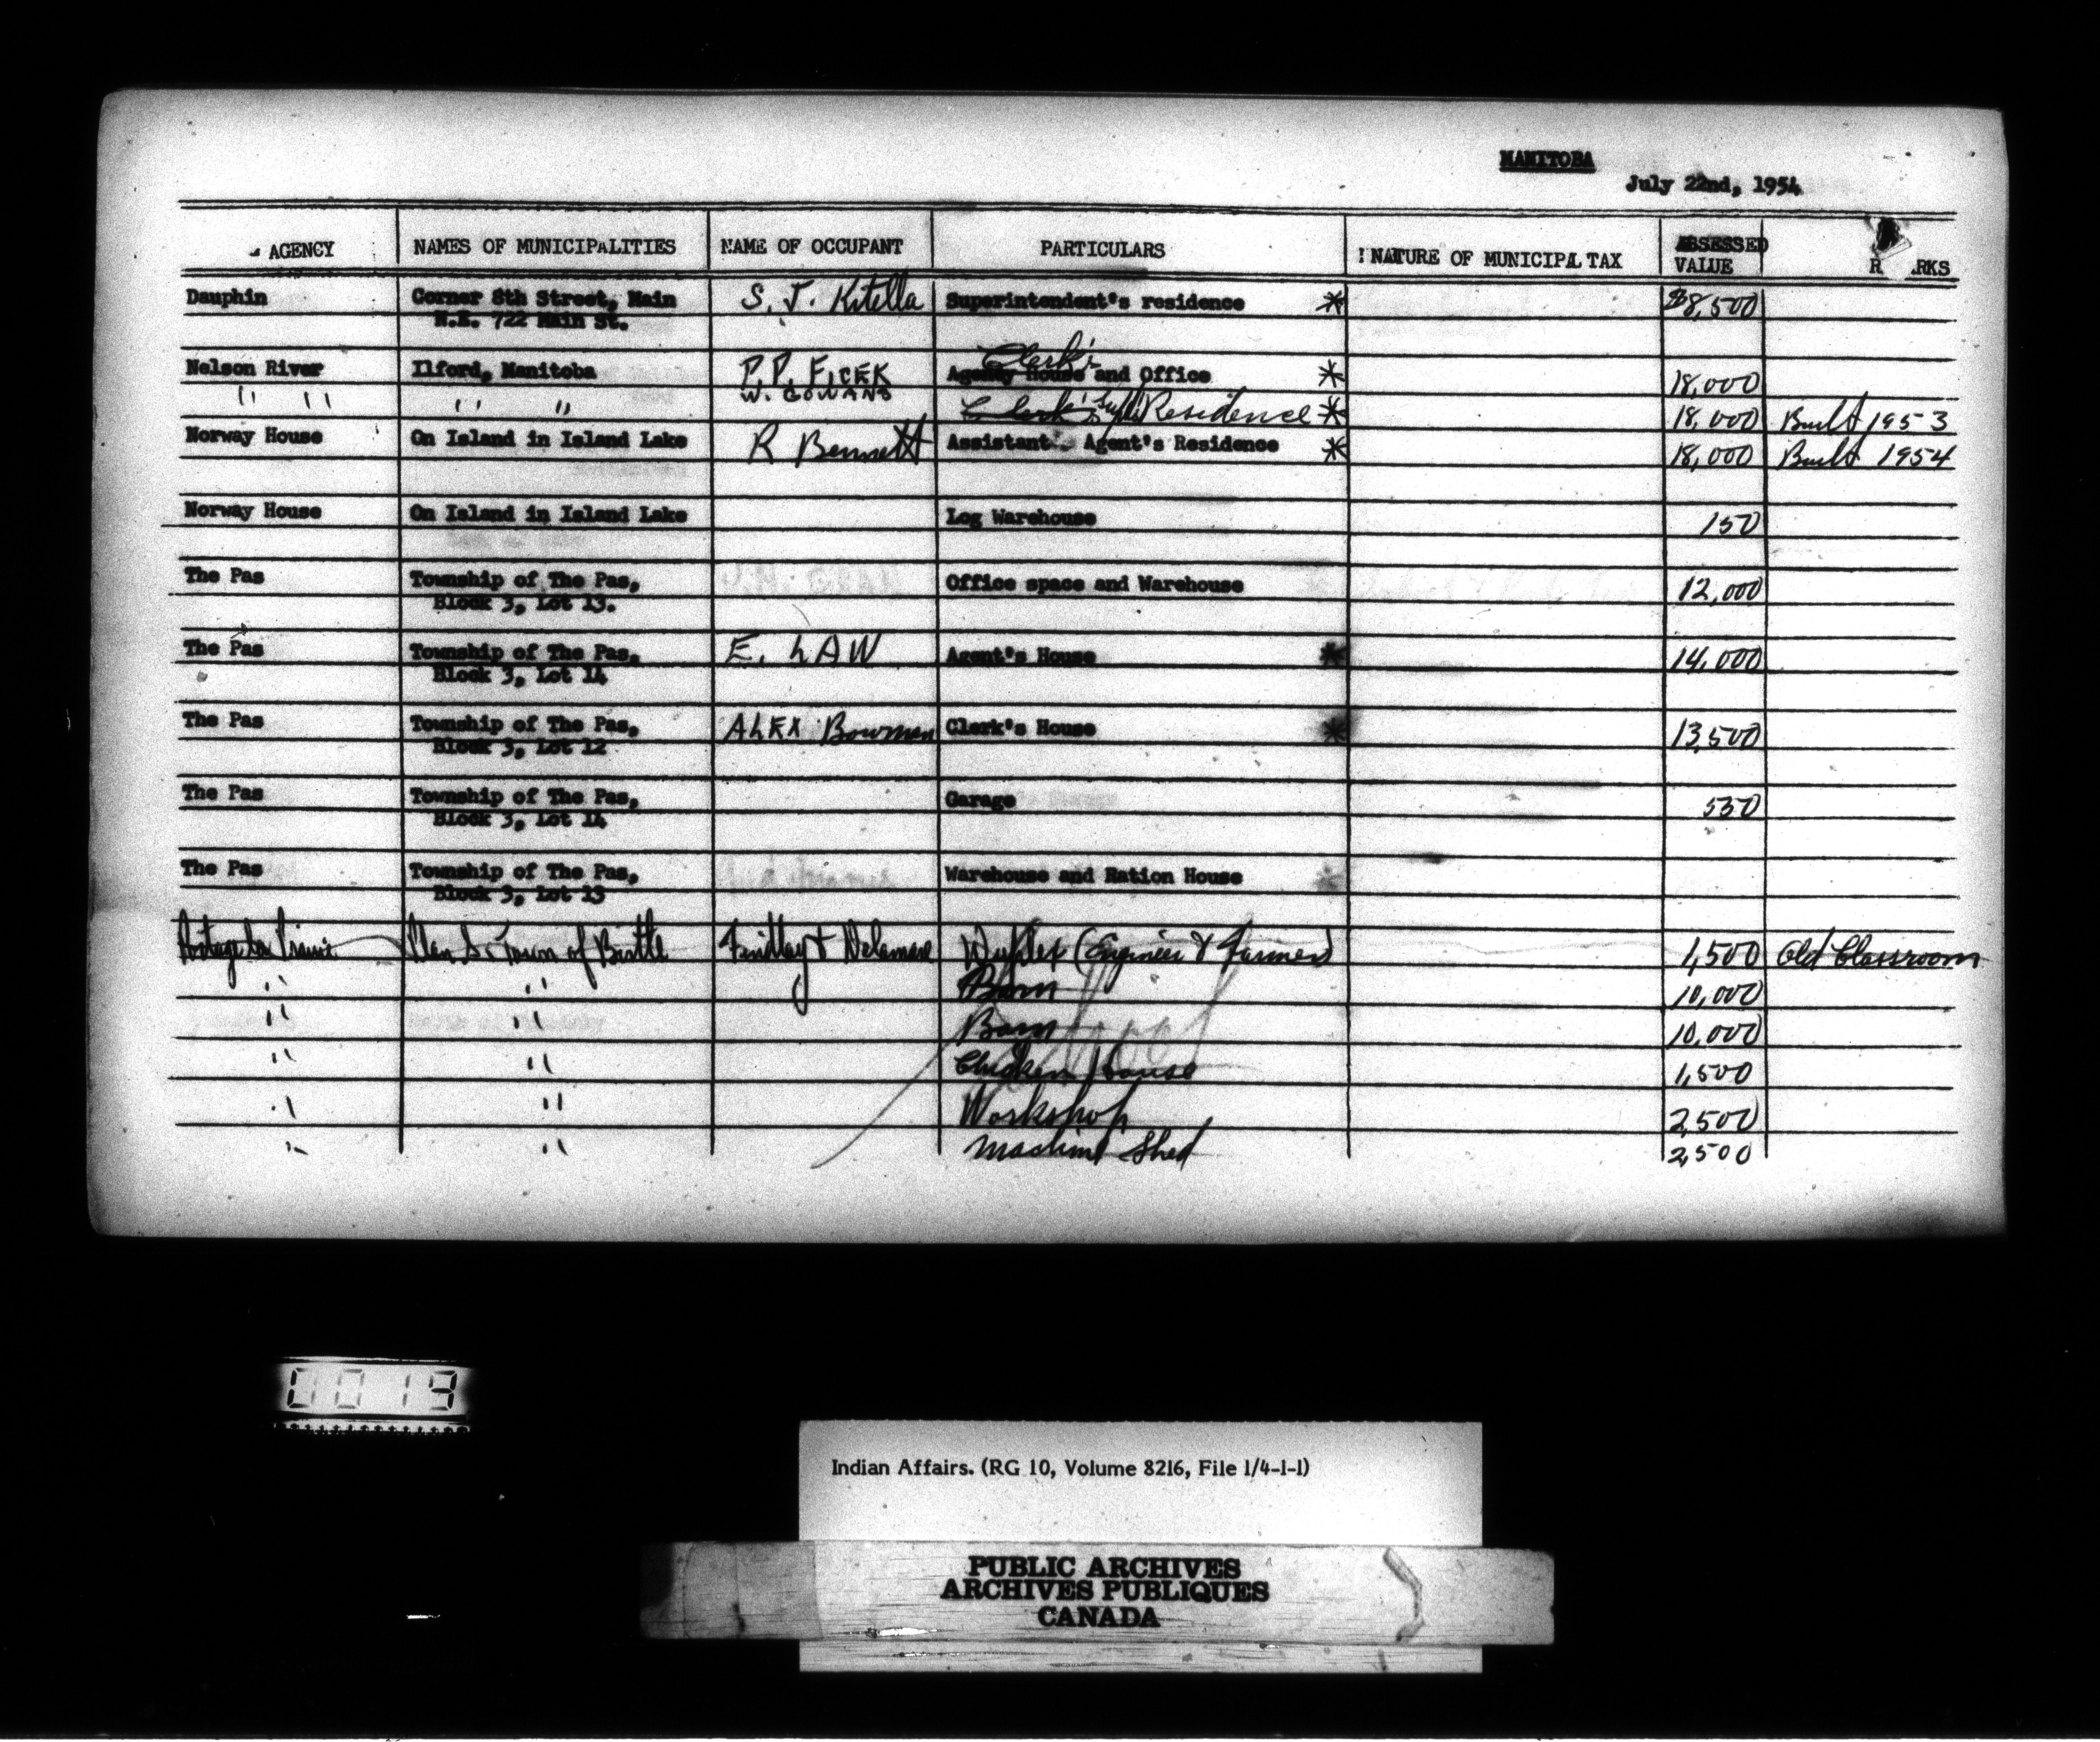 MANITOBA
July 22nd, 1954
AGENCY NAMES OF MUNICIPALITIES NAME OF OCCUPANT PARTICULARS NATURE OF MUNICIPAL TAX ASSESSED VALUE R RKS
Dauphin Corner 8th Street, Main S. J. Kitella Superintendent's residence * $8,500
N.E. 722 Main St.
Clerk's
Nelson River Ilford, Manitoba P. P. FICEK Agency House and Office * 18,000
" " " " W. GOWANS Clerk's Supt's Residence * 18,000 Built 1953
Norway House On Island in Island Lake R Bennett Assistant Agent's Residence * 18,000 Built 1954
Norway House On Island in Island Lake Log Warehouse 150
The Pas Township of The Pas, Office space and Warehouse 12,000
Block 3, Lot 13.
The Pas Township of The Pas, E. LAW Agent's House * 14,000
Block 3, Lot 14
The Pas Township of The Pas, ALEX Bowman Clerk's House * 13,500
Block 3, Lot 12
The Pas Township of The Pas, Garage 550
Block 3, Lot 14
The Pas Township of The Pas, Warehouse and Ration House *
Block 3, Lot 13
Portage la Prairie Plan Town of Birtle Findlay & Delamere Duplex (Engineer & Farmer) 1,500 Old Classroom
" " Barn 10,000
" " Barn 10,000
" " Chicken House 1,500
" " Workshop 2,500
" " Machine Shed 2,500
0019
Indian Affairs. (RG 10, Volume 8216, File 1/4-1-1)
PUBLIC ARCHIVES
ARCHIVES PUBLIQUES
CANADA